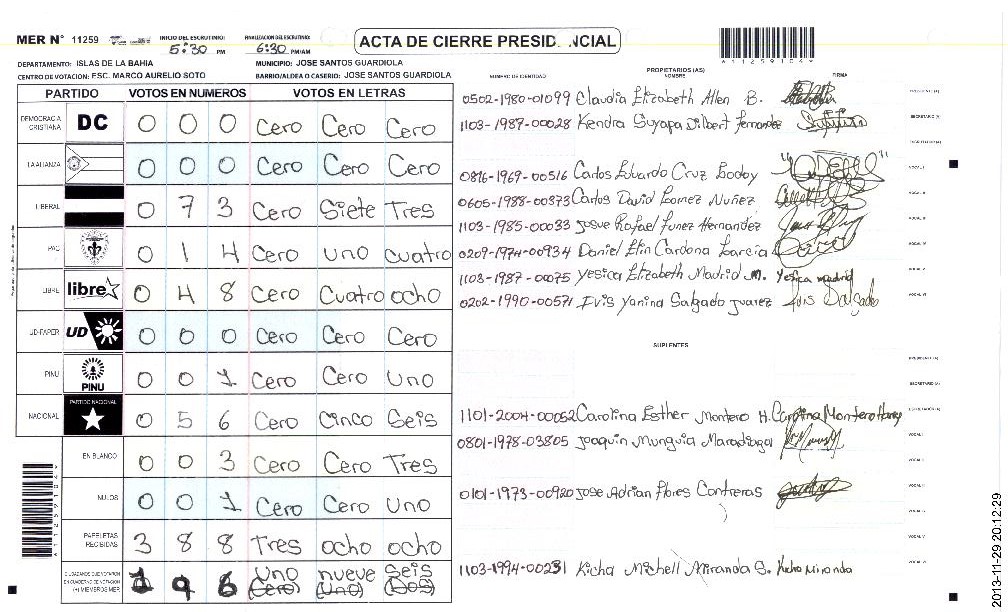 MER N° 11259 INICIO DEL ESCRUTINIO: 5:30 PM FINALIZACION DEL ESCRUTINIO: 6:30 PM/AM ACTA DE CIERRE PRESIDENCIAL
DEPARTAMENTO: ISLAS DE LA BAHIA MUNICIPIO: JOSE SANTOS GUARDIOLA
CENTRO DE VOTACION: ESC. MARCO AURELIO SOTO BARRIO/ALDEA O CASERIO: JOSE SANTOS GUARDIOLA
PARTIDO VOTOS EN NUMEROS VOTOS EN LETRAS
DEMOCRACIA CRISTIANA DC 0 0 0 Cero Cero Cero
LA ALIANZA 0 0 0 Cero Cero Cero
LIBERAL 0 7 3 Cero Siete Tres
PAC 0 1 4 Cero uno cuatro
LIBRE libre 0 4 8 Cero Cuatro ocho
UD-FAPER UD 0 0 0 Cero Cero Cero
PINU PINU 0 0 1 Cero Cero Uno
NACIONAL PARTIDO NACIONAL 0 5 6 Cero Cinco Seis
EN BLANCO 0 0 3 Cero Cero Tres
NULOS 0 0 1 Cero Cero Uno
PAPELETAS RECIBIDAS 3 8 8 Tres ocho ocho
CIUDADANOS QUE VOTARON EN CUADERNO DE VOTACION (+) MIEMBROS MER 1 9 6 Uno nueve Seis
(Cero) (Uno) (Dos)
NUMERO DE IDENTIDAD PROPIETARIOS (AS) NOMBRE FIRMA
0502-1980-01099 Claudia Elizabeth Allen B. PRESIDENTE (A)
1103-1987-00028 Kendra Suyapa Dilbert fernandez SECRETARIO (A)
ESCRUTADOR (A)
0816-1969-00516 Carlos Eduardo Cruz Godoy VOCAL I
0605-1988-00873 Carlos David Gomez Nuñez VOCAL II
1103-1985-00033 Josue Rafael Funez Hernandez VOCAL III
0209-1974-00934 Daniel Elin Cardona Garcia VOCAL IV
1103-1987-00075 Yesica Elizabeth Madrid M. Yesica madrid VOCAL V
0202-1990-00571 Ivis Yanina Salgado Juarez Ivis Salgado VOCAL VI
SUPLENTES
PRESIDENTE (A)
SECRETARIO (A)
1101-2004-00052 Carolina Esther Montero H. Carolina Montero ESCRUTADOR (A)
0801-1978-03805 Joaquin Munguia Maradiaga VOCAL I
VOCAL II
0101-1973-00920 Jose Adrian Flores Contreras VOCAL III
VOCAL IV
VOCAL V
1103-1994-00231 Kicha Michell Miranda G. Kicha Miranda VOCAL VI
2013-11-29 20:12:29